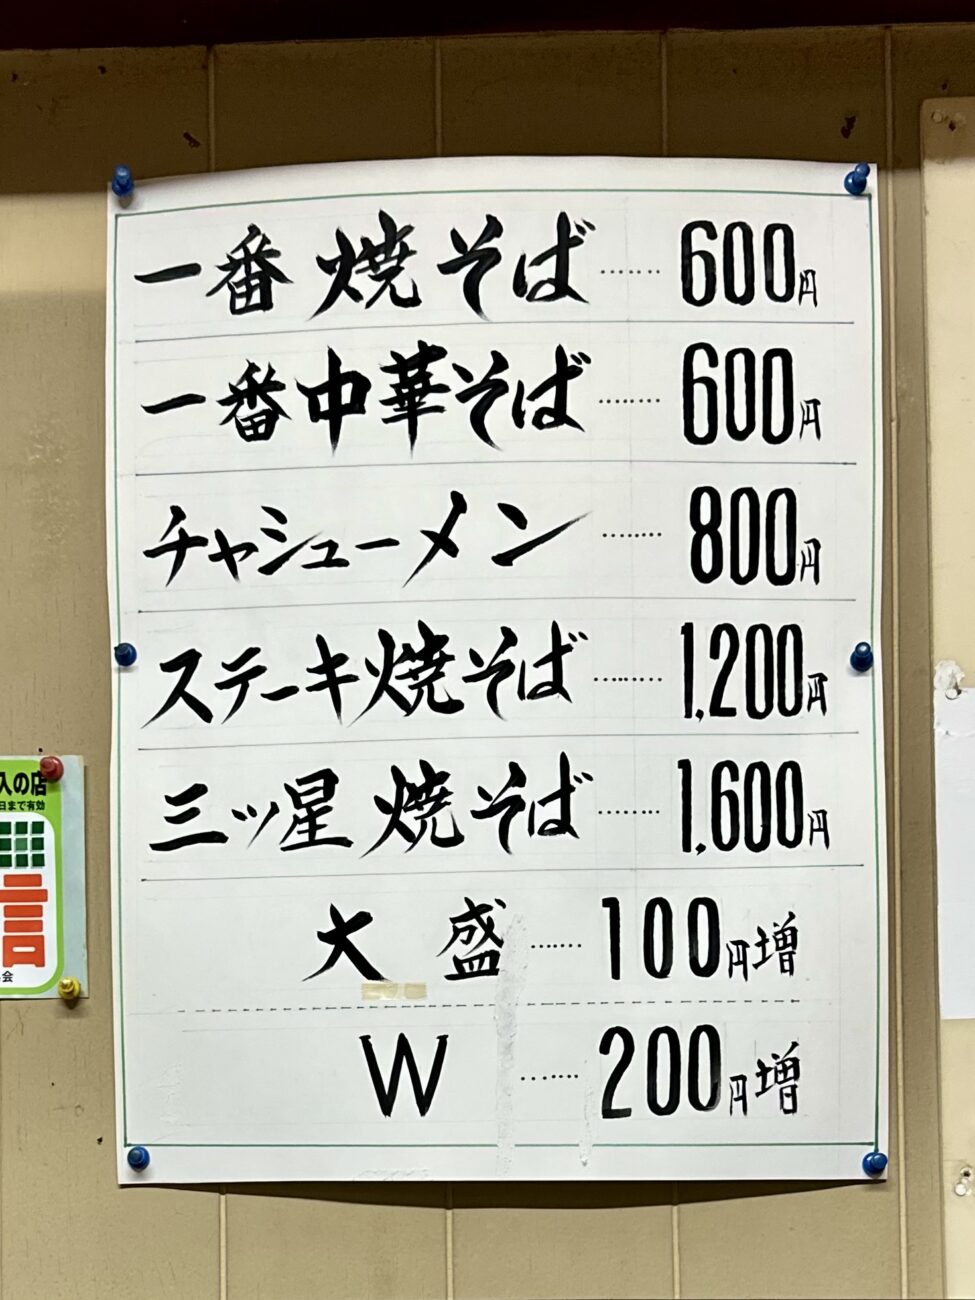 一番焼そば……600円
一番中華そば……600円
チャシューメン……800円
ステーキ焼そば……1,200円
三ッ星焼そば……1,600円
大盛……100円増
W……200円増
入の店
日まで有効
言
会